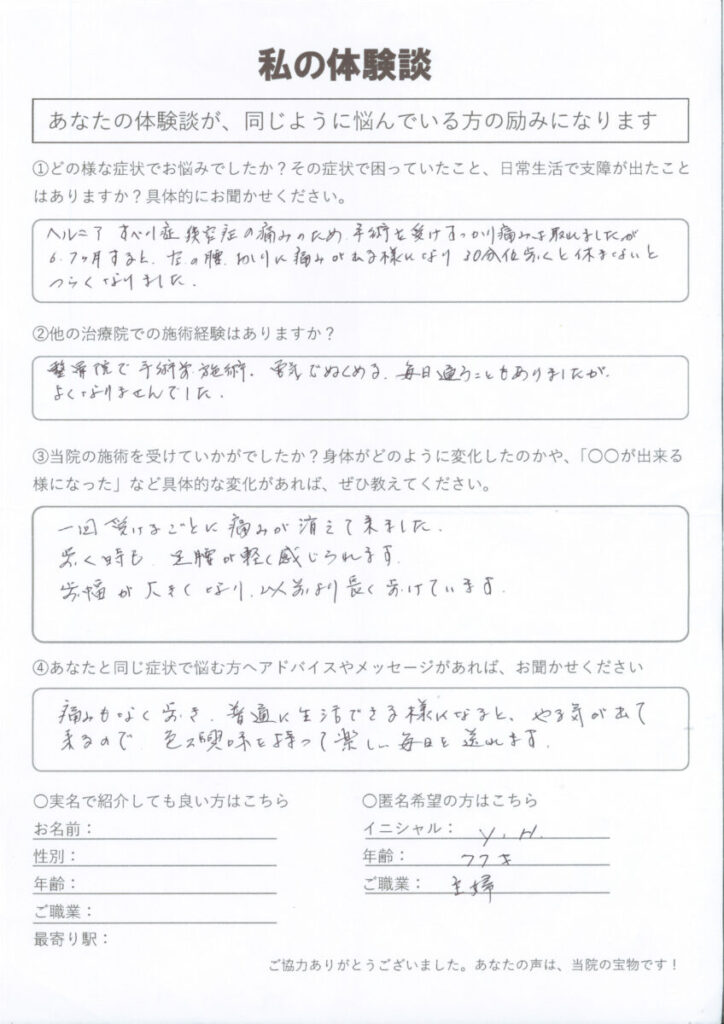 私の体験談
あなたの体験談が、同じように悩んでいる方の励みになります
①どの様な症状でお悩みでしたか？その症状で困っていたこと、日常生活で支障が出たこと
はありますか？具体的にお聞かせください。
ヘルニア すべり症 狭窄症の痛みのため、手術を受けすっかり痛みは取れましたが
6.7ヶ月すると、左の腰、おしりに痛みが出る様になり 30分位歩くと休まないと
つらくなりました.
②他の治療院での施術経験はありますか？
整骨院で 手術前施術. 電気でぬくめる、毎日通うこともありましたが、
よくなりませんでした.
③当院の施術を受けていかがでしたか？身体がどのように変化したのかや、「〇〇が出来る
様になった」など具体的な変化があれば、ぜひ教えてください。
一回受けるごとに痛みが消えて来ました.
歩く時も、足腰が軽く感じられます.
歩幅が大きくなり、以前より長く歩けています.
④あなたと同じ症状で悩む方へアドバイスやメッセージがあれば、お聞かせください
痛みもなく歩き、普通に生活できる様になると、やる気が出て
来るので 色々興味を持って楽しい毎日を送れます.
〇実名で紹介しても良い方はこちら
お名前：
性別：
年齢：
ご職業：
最寄り駅：
〇匿名希望の方はこちら
イニシャル： Y.H.
年齢： 77才
ご職業： 主婦
ご協力ありがとうございました。あなたの声は、当院の宝物です！